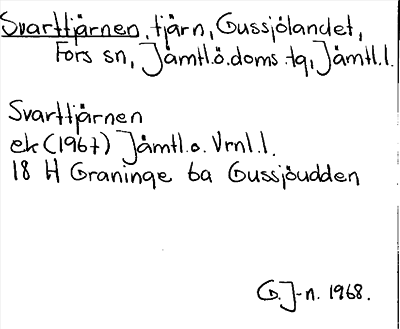 Svarttjärnen, tjärn, Gussjölandet,
Fors sn, Jämtl.ö.doms.tg, Jämtl.l.
Svarttjärnen
ek (1967) Jämtl.o. Vrnl.l.
18 H Graninge 6a Gussjöudden
G.J-n. 1968.